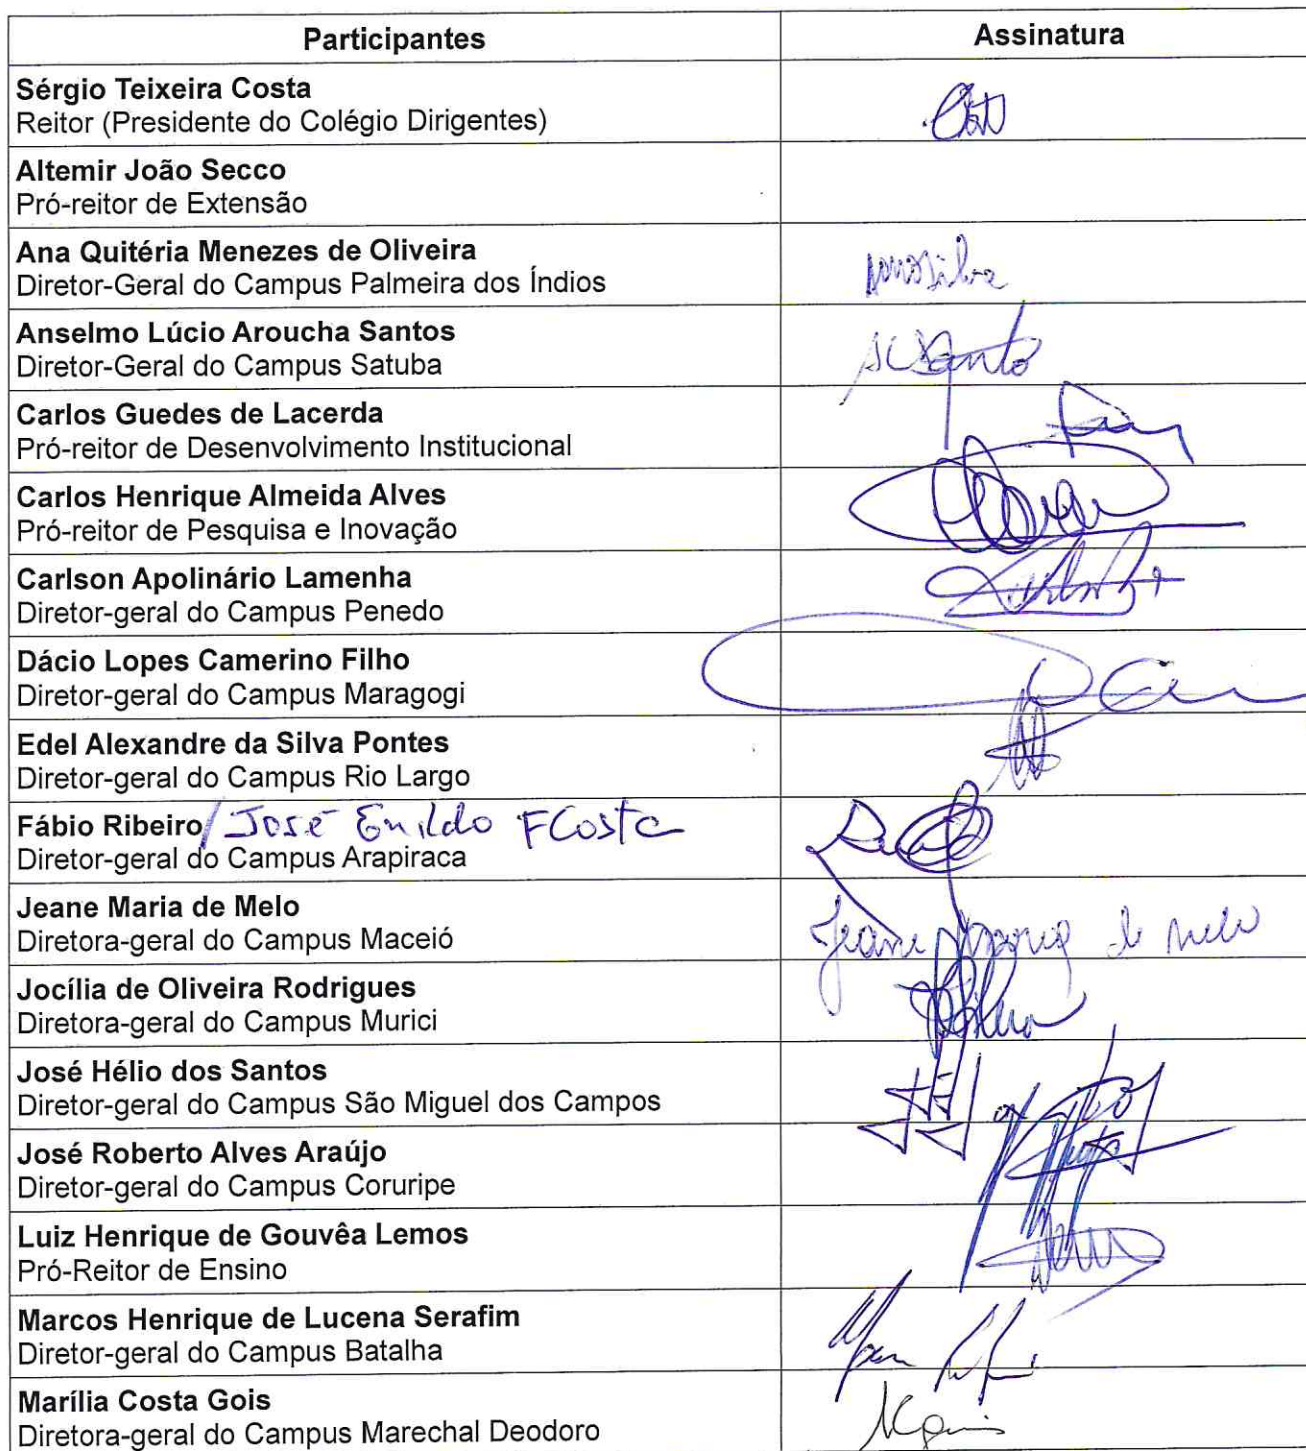 Participantes Assinatura
Sérgio Teixeira Costa
Reitor (Presidente do Colégio Dirigentes)
Altemir João Secco
Pró-reitor de Extensão
Ana Quitéria Menezes de Oliveira
Diretor-Geral do Campus Palmeira dos Índios
Anselmo Lúcio Aroucha Santos
Diretor-Geral do Campus Satuba
Carlos Guedes de Lacerda
Pró-reitor de Desenvolvimento Institucional
Carlos Henrique Almeida Alves
Pró-reitor de Pesquisa e Inovação
Carlson Apolinário Lamenha
Diretor-geral do Campus Penedo
Dácio Lopes Camerino Filho
Diretor-geral do Campus Maragogi
Edel Alexandre da Silva Pontes
Diretor-geral do Campus Rio Largo
Fábio Ribeiro / José Enildo F Costa
Diretor-geral do Campus Arapiraca
Jeane Maria de Melo
Diretora-geral do Campus Maceió
Jeane Maria de Melo
Jocília de Oliveira Rodrigues
Diretora-geral do Campus Murici
José Hélio dos Santos
Diretor-geral do Campus São Miguel dos Campos
José Roberto Alves Araújo
Diretor-geral do Campus Coruripe
Luiz Henrique de Gouvêa Lemos
Pró-Reitor de Ensino
Marcos Henrique de Lucena Serafim
Diretor-geral do Campus Batalha
Marília Costa Gois
Diretora-geral do Campus Marechal Deodoro